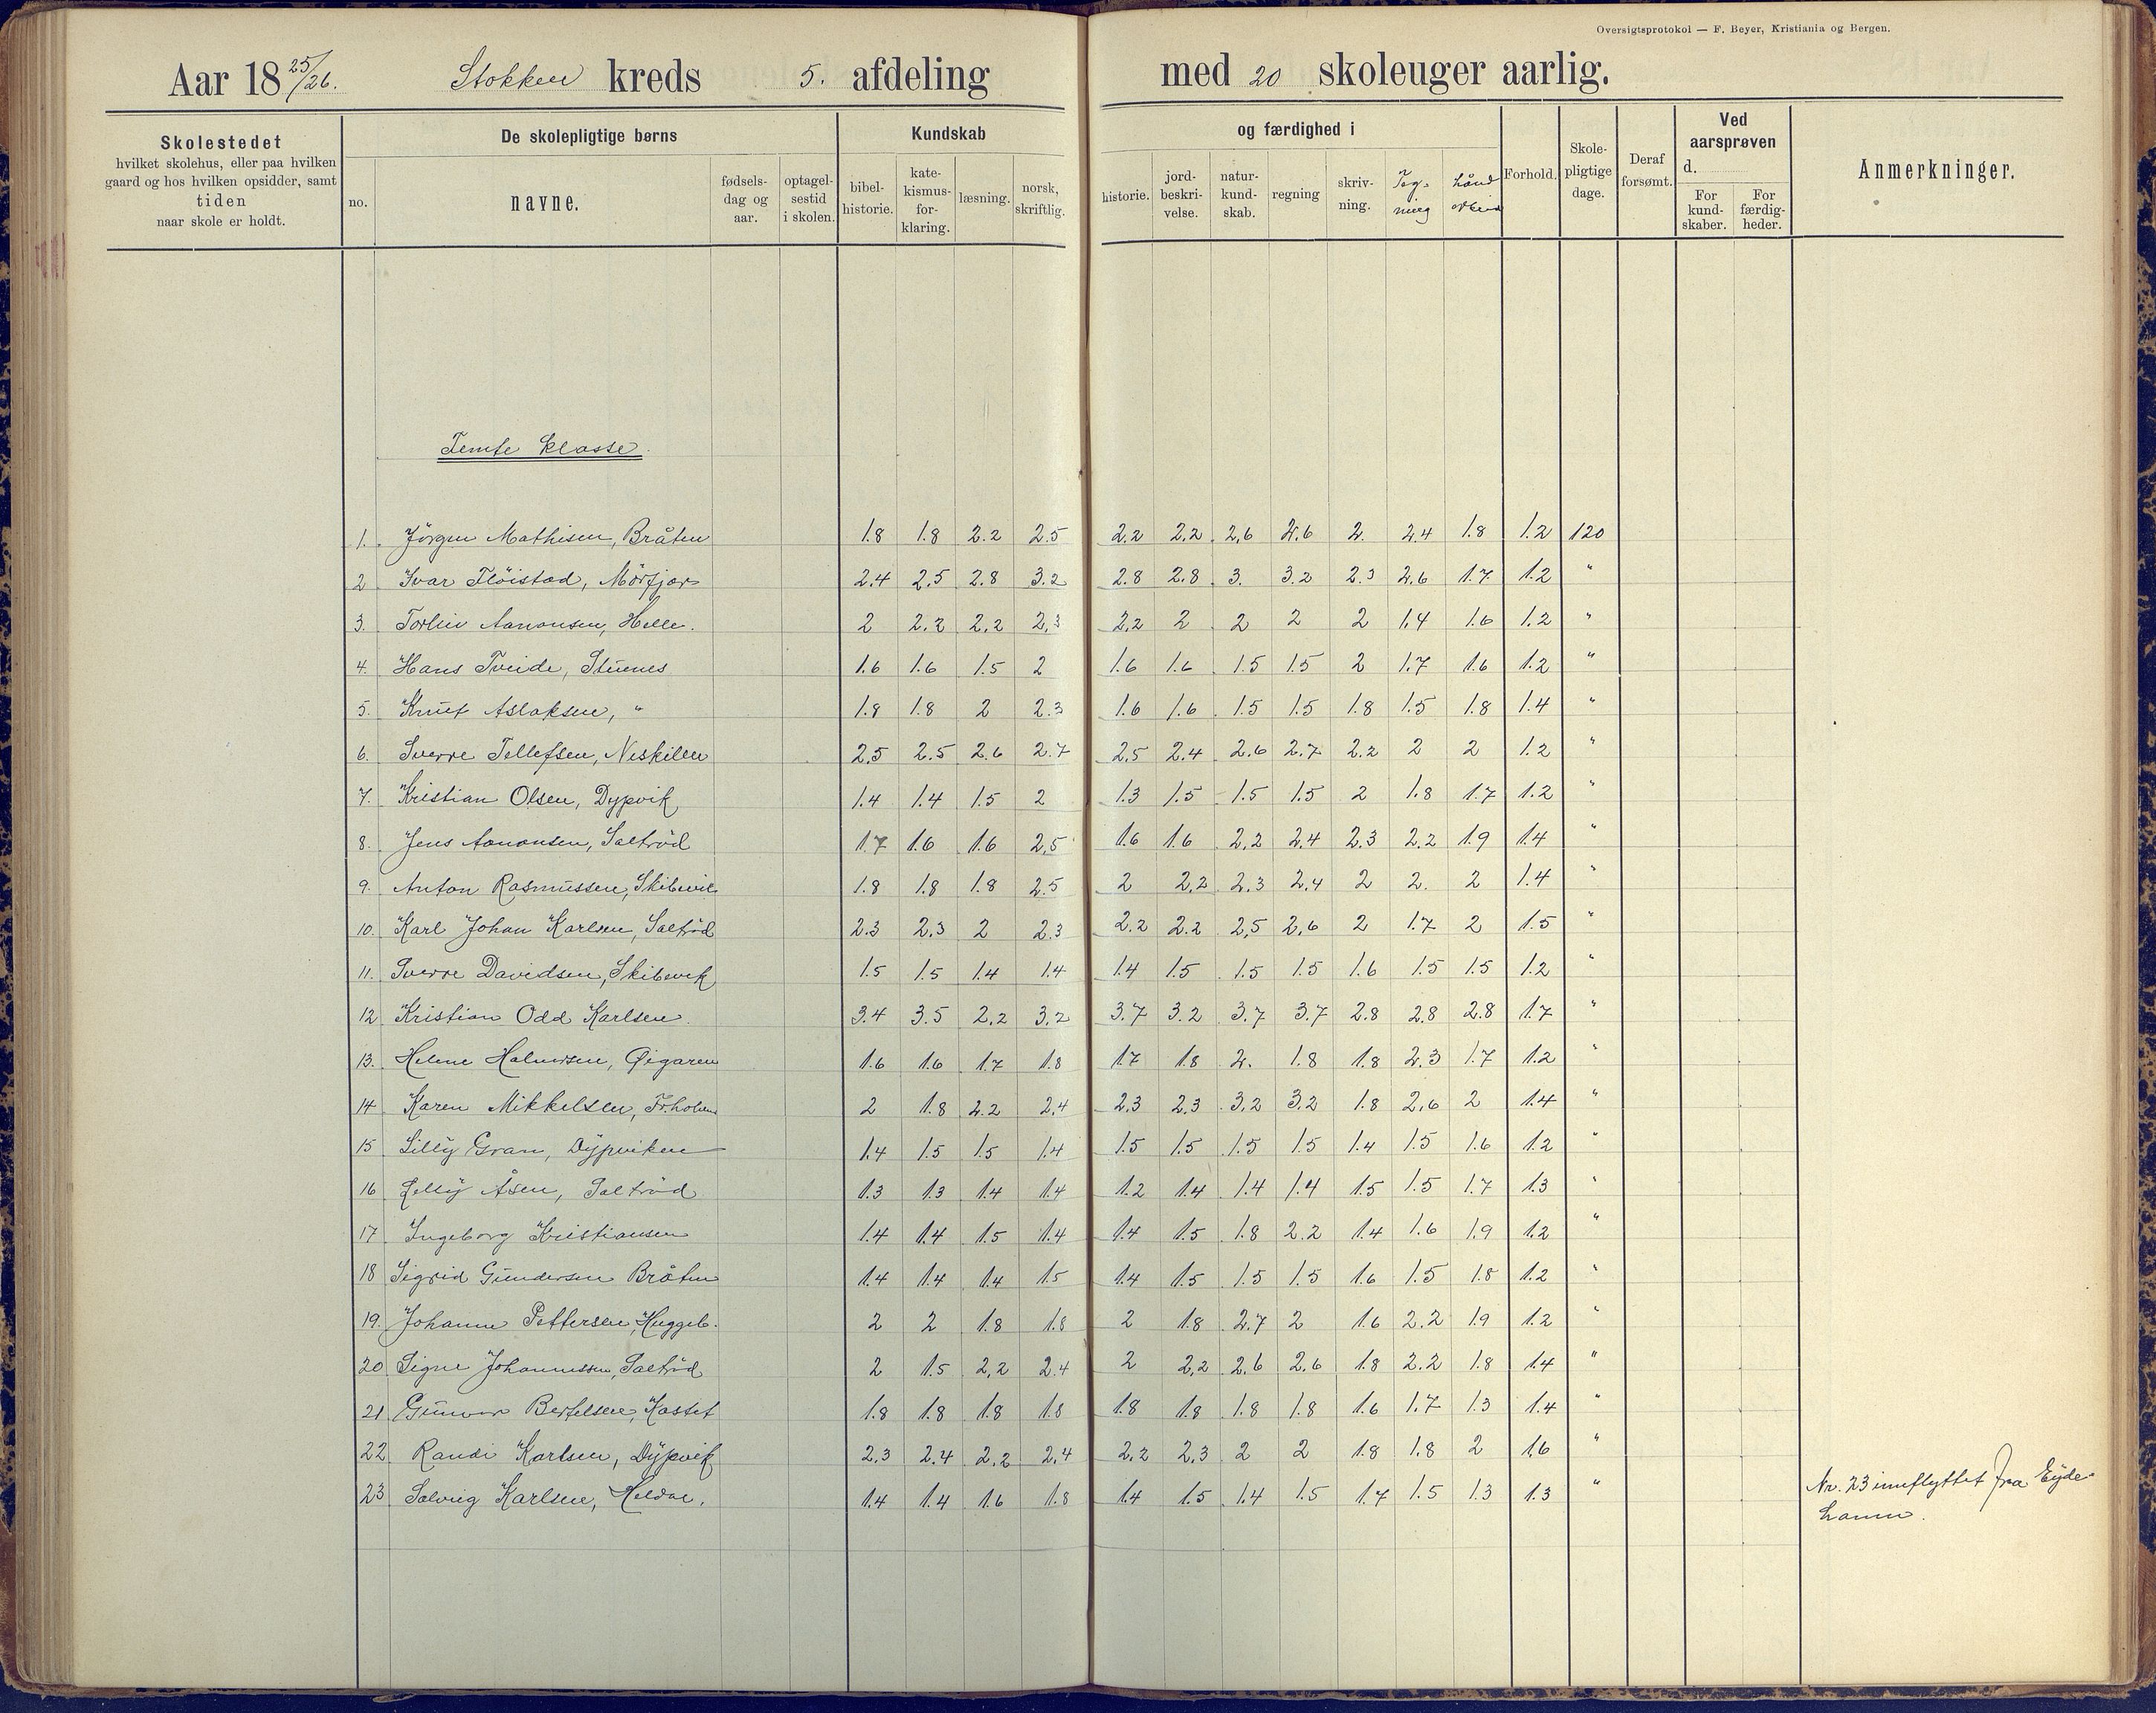 Oversigtsprotokol — F. Beyer, Kristiania og Bergen.
Aar 18 25/26. Stokken kreds 5. afdeling med 20 skoleuger aarlig.
Skolestedet
hvilket skolehus, eller paa hvilken
gaard og hos hvilken opsidder, samt
tiden
naar skole er holdt.
De skolepligtige børns
no.
navne.
fødsels-
dag og
aar.
optagel-
sestid
i skolen.
Kundskab
bibel-
historie.
kate-
kismus-
for-
klaring.
læsning.
norsk,
skriftlig.
og færdighed i
historie.
jord-
beskri-
velse.
natur-
kund-
skab.
regning
skriv-
ning.
Teg-
ning
Hånd
arbeid
Forhold.
Skole-
pligtige
dage.
Deraf
forsømt.
Ved
aarsprøven
d.
For
kund-
skaber.
For
færdig-
heder.
Anmerkninger.
Femte klasse.
1. Jörgen Mathisen, Bråten 1.8 1.8 2.2 2.5 2.2 2.2 2.6 2.6 2. 2.4 1.8 1.2 120
2 Ivar Flöistad, Mörfjær 2.4 2.5 2.8 3.2 2.8 2.8 3. 3.2 2.3 2.6 1.7 1.2 "
3. Torleiv Aanonsen, Helle. 2 2.2 2.2 2.3 2.2 2 2 2 2 1.4 1.6 1.2 "
4. Hans Tveide, Stuenes 1.6 1.6 1.5 2 1.6 1.6 1.5 1.5 2 1.7 1.6 1.2 "
5. Knut Aslaksen, " 1.8 1.8 2 2.3 1.6 1.6 1.5 1.5 1.8 1.5 1.8 1.4 "
6. Sverre Tellefsen, Neskilen 2.5 2.5 2.6 2.7 2.5 2.4 2.6 2.7 2.2 2 2 1.2 "
7. Kristian Olsen, Dypvik 1.4 1.4 1.5 2 1.3 1.5 1.5 1.5 2 1.8 1.7 1.2 "
8. Jens Aanonsen, Saltröd 1.7 1.6 1.6 2.5 1.6 1.6 2.2 2.4 2.3 2.2 1.9 1.4 "
9. Anton Rasmussen, 1.8 1.8 1.8 2.5 2 2.2 2.3 2.4 2 2. 2 1.4 "
10. Karl Johan Karlsen, Saltröd 2.3 2.3 2 2.3 2.2 2.2 2.5 2.6 2 1.7 2 1.5 "
11. Sverre Davidsen, Skibevik 1.5 1.5 1.4 1.4 1.4 1.5 1.5 1.5 1.6 1.5 1.5 1.2 "
12 Kristian Odd Karlsen. 3.4 3.5 2.2 3.2 3.7 3.2 3.7 3.7 2.8 2.8 2.8 1.7 "
13. Helene Halvorsen, 1.6 1.6 1.7 1.8 1.7 1.8 2. 1.8 1.8 2.3 1.7 1.2 "
14 Karen Mikkelsen, Fr.holm 2 1.8 2.2 2.4 2.3 2.3 3.2 3.2 1.8 2.6 2 1.4 "
15 Lilly Gran, Dypviken 1.4 1.5 1.5 1.4 1.5 1.5 1.5 1.5 1.4 1.5 1.6 1.2 "
16 Lelly Åsen, Saltröd 1.3 1.3 1.4 1.4 1.2 1.4 1.4 1.4 1.5 1.5 1.7 1.3 "
17 Ingeborg Kristiansen 1.4 1.4 1.5 1.4 1.4 1.5 1.8 2.2 1.4 1.6 1.9 1.2 "
18 Sigrid Gundersen Bråten 1.4 1.4 1.4 1.5 1.4 1.5 1.5 1.5 1.6 1.5 1.8 1.2 "
19. Johanne Pettersen, Huggeb. 2 2 1.8 1.8 2 1.8 2.7 2 1.6 2.2 1.9 1.2 "
20 Signe Johannessen, Saltröd 2 1.5 2.2 2.4 2 2.2 2.6 2.6 1.8 2.2 1.8 1.4 "
21 Gunvor Bertelsen, Kastet 1.8 1.8 1.8 1.8 1.8 1.8 1.8 1.8 1.6 1.7 1.3 1.4 "
22 Randi Karlsen, Dypvik 2.3 2.4 2.2 2.4 2.2 2.3 2 2 1.8 1.8 2 1.6 "
23 Solveig Karlsen, Heldal. 1.4 1.4 1.6 1.8 1.4 1.5 1.4 1.5 1.7 1.5 1.3 1.3 "
Nr. 23 innflyttet fra Eyde-
havn.